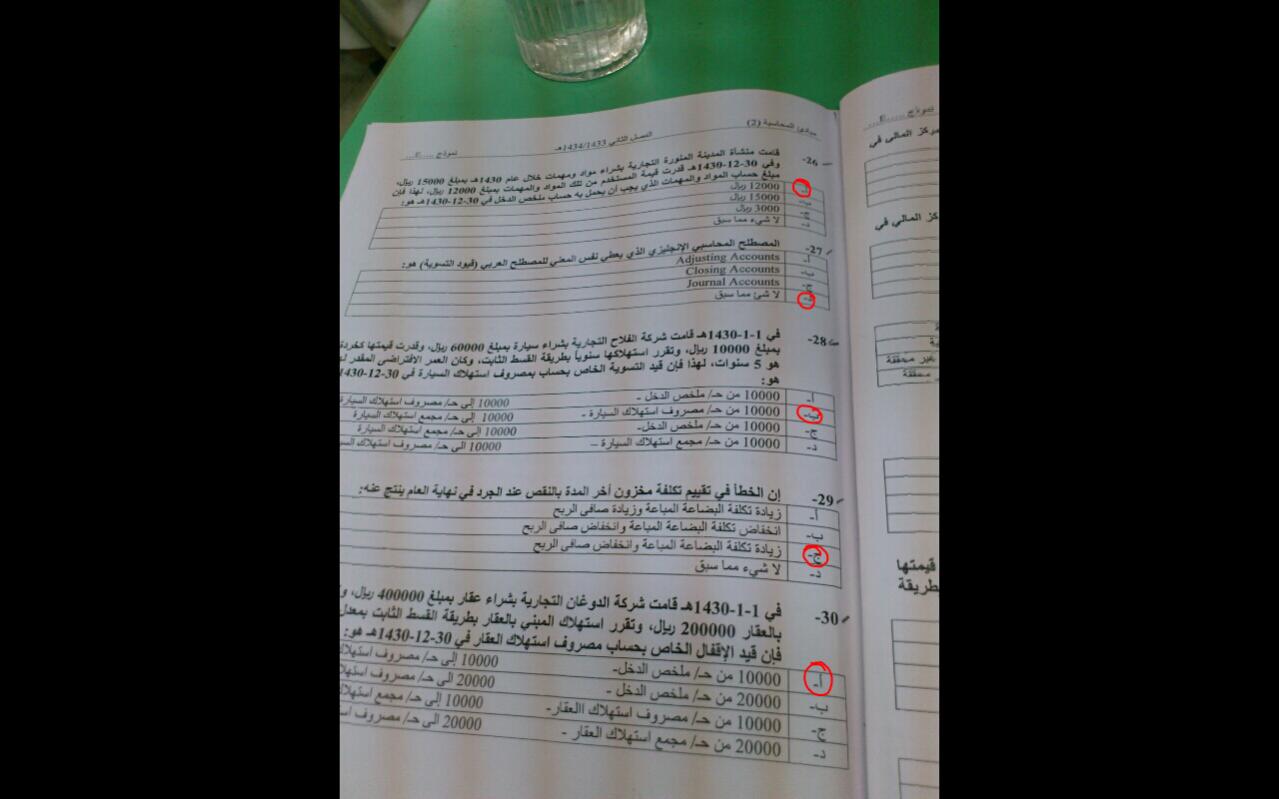 مبادئ المحاسبة (2) الفصل الثاني 1434/1433هـ نموذج ....E...
26- قامت منشأة المدينة المنورة التجارية بشراء مواد ومهمات خلال عام 1430هـ بمبلغ 15000 ريال،
وفي 30-12-1430هـ قدرت قيمة المستخدم من تلك المواد والمهمات بمبلغ 12000 ريال، لهذا فإن
مبلغ حساب المواد والمهمات الذي يجب أن يحمل به حساب ملخص الدخل في 30-12-1430هـ هو:
أ- 12000 ريال
ب- 15000 ريال
ج- 3000 ريال
د- لا شيء مما سبق
27- المصطلح المحاسبي الإنجليزي الذي يعطي نفس المعني للمصطلح العربي (قيود التسوية) هو:
أ- Adjusting Accounts
ب- Closing Accounts
ج- Journal Accounts
د- لا شئ مما سبق
28- في 1-1-1430هـ قامت شركة الفلاح التجارية بشراء سيارة بمبلغ 60000 ريال، وقدرت قيمتها كخردة
بمبلغ 10000 ريال، وتقرر استهلاكها سنوياً بطريقة القسط الثابت، وكان العمر الأفتراضى المقدر
هو 5 سنوات، لهذا فإن قيد التسوية الخاص بحساب بمصروف استهلاك السيارة في 30-12-1430
هو:
أ- 10000 من حـ/ ملخص الدخل - 10000 إلى حـ/ مصروف استهلاك السيارة
ب- 10000 من حـ/ مصروف استهلاك السيارة - 10000 إلى حـ/ مجمع استهلاك السيارة
ج- 10000 من حـ/ ملخص الدخل- 10000 إلى حـ/ مجمع استهلاك السيارة
د- 10000 من حـ/ مجمع استهلاك السيارة – 10000 الى حـ/ مصروف استهلاك
29- إن الخطأ في تقييم تكلفة مخزون أخر المدة بالنقص عند الجرد في نهاية العام ينتج عنه:
أ- زيادة تكلفة البضاعة المباعة وزيادة صافى الربح
ب- انخفاض تكلفة البضاعة المباعة وانخفاض صافى الربح
ج- زيادة تكلفة البضاعة المباعة وانخفاض صافى الربح
د- لا شيء مما سبق
30- في 1-1-1430هـ قامت شركة الدوغان التجارية بشراء عقار بمبلغ 400000 ريال،
بالعقار 200000 ريال، وتقرر استهلاك المبني بالعقار بطريقة القسط الثابت بمعدل
فإن قيد الإقفال الخاص بحساب مصروف استهلاك العقار في 30-12-1430هـ هو:
أ- 10000 من حـ/ ملخص الدخل- 10000 إلى حـ/ مصروف
ب- 20000 من حـ/ ملخص الدخل - 20000 الى حـ/ مصروف
ج- 10000 من حـ/ مصروف استهلاك االعقار- 10000 إلى حـ/ مجمع
د- 20000 من حـ/ مجمع استهلاك العقار - 20000 الى حـ/ مصروف
نموذج ....E...
مركز المالى في
المالى في
غير محققة
محققة
قيمتها